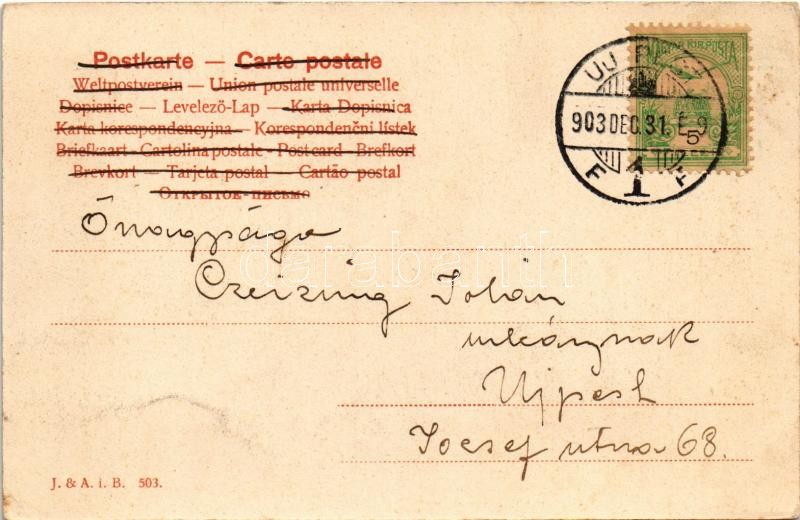 Postkarte — Carte postale
Weltpostverein — Union postale universelle
Dopisnice — Levelező-Lap — Karta Dopisnica
Karta korespondencyjna — Korespondenční lístek
Briefkaart - Cartolina postale - Postcard - Brefkort
Brevkort — Tarjeta postal — Cartão postal
Открытое-письмо
MAGYAR KIR. POSTA
UJ P
903 DEC. 31. E. 9
5
F 1 F
Őnagysága
Czeizing Zoltán
urkának
Ujpest
József utca 68.
darabanth
J. & A. i. B. 503.